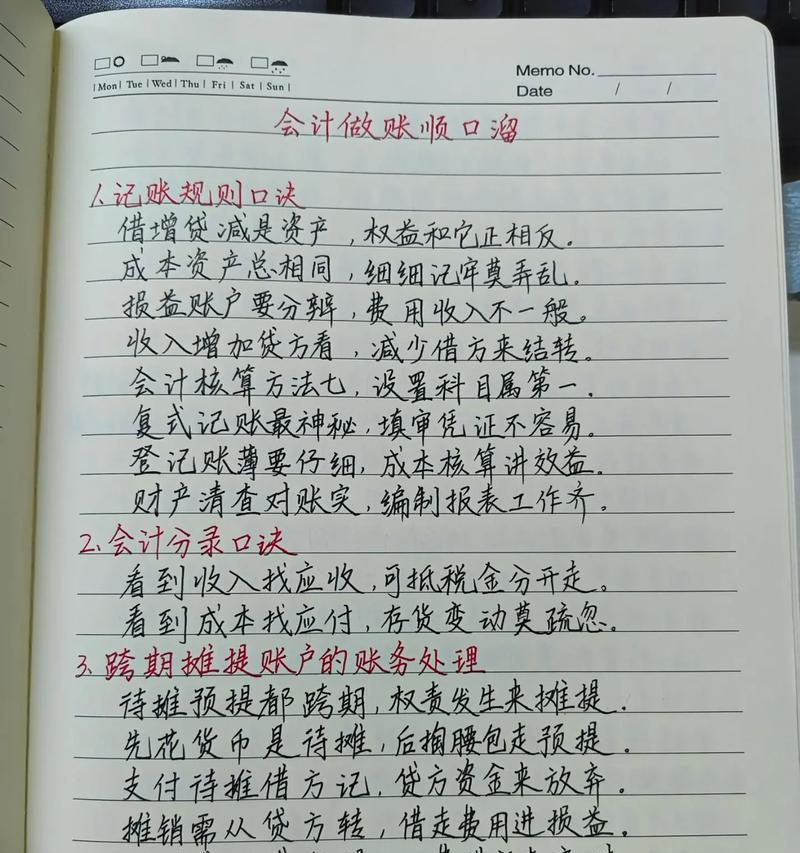 Mon Tue Wed Thu Fri Sat Sun
Memo No.
Date / /
会计做账顺口溜
1.记账规则口诀
借增贷减是资产，权益和它正相反。
成本资产总相同，细细记牢莫弄乱。
损益账户要分辨，费用收入不一般。
收入增加贷方看，减少借方来结转。
会计核算方法七，设置科目属第一.
复式记账最神秘，填审凭证不容易。
登记账薄要仔细，成本核算讲效益。
财产清查对账实，编制报表工作齐。
2、会计分录口诀
看到收入找应收，可抵税金分开走。
看到成本找应付，存货变动莫疏忽。
3、跨期摊提账户的账务处理
待摊预提都跨期，权责发生来摊提.
先花货币是待摊，后掏腰包走预提.
支付待摊借方记，贷方资金来放弃.
摊销需从贷方转，借走费用进损益.